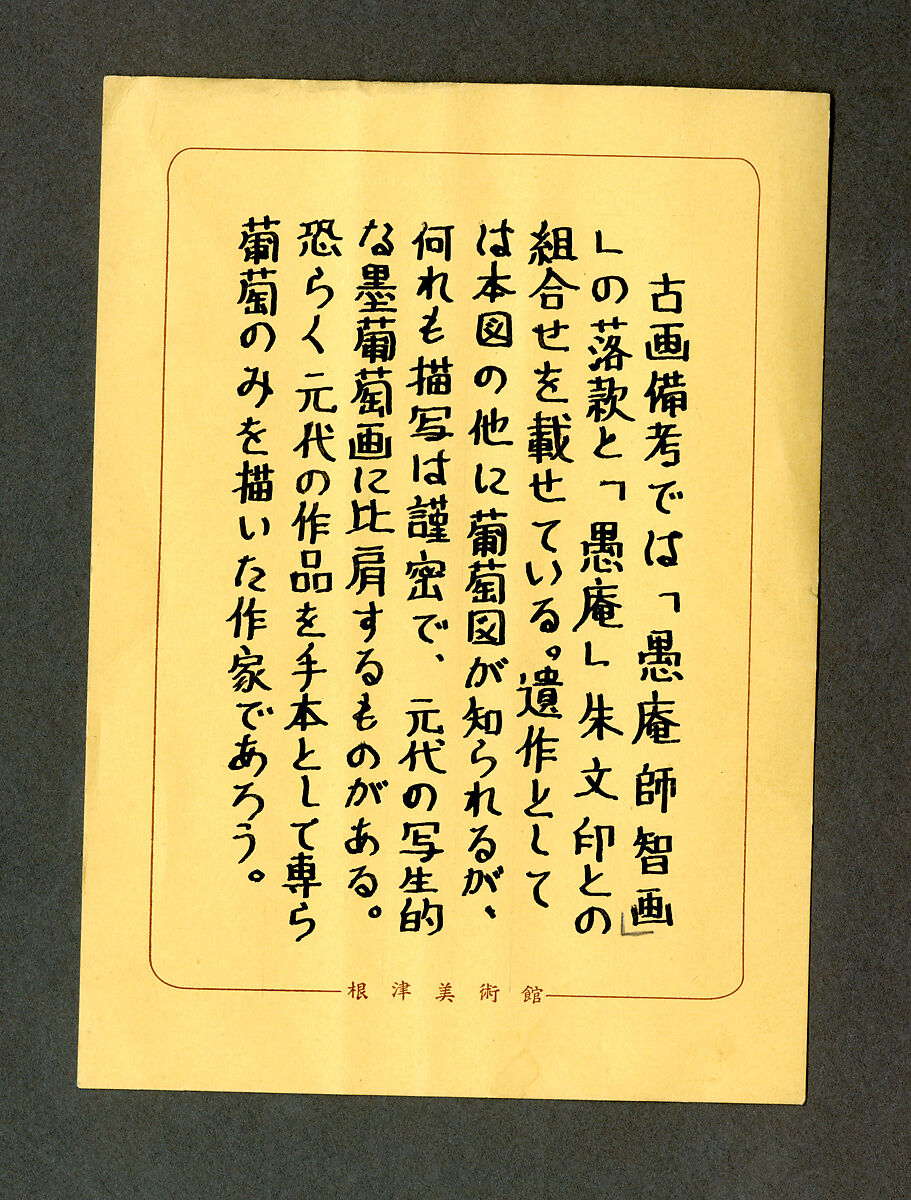 古画備考では「愚庵師智画」
」の落款と「愚庵」朱文印との
組合せを載せている。遺作として
は本図の他に葡萄図が知られるが、
何れも描写は謹密で、元代の写生的
な墨葡萄画に比肩するものがある。
恐らく元代の作品を手本として専ら
葡萄のみを描いた作家であろう。
根津美術館